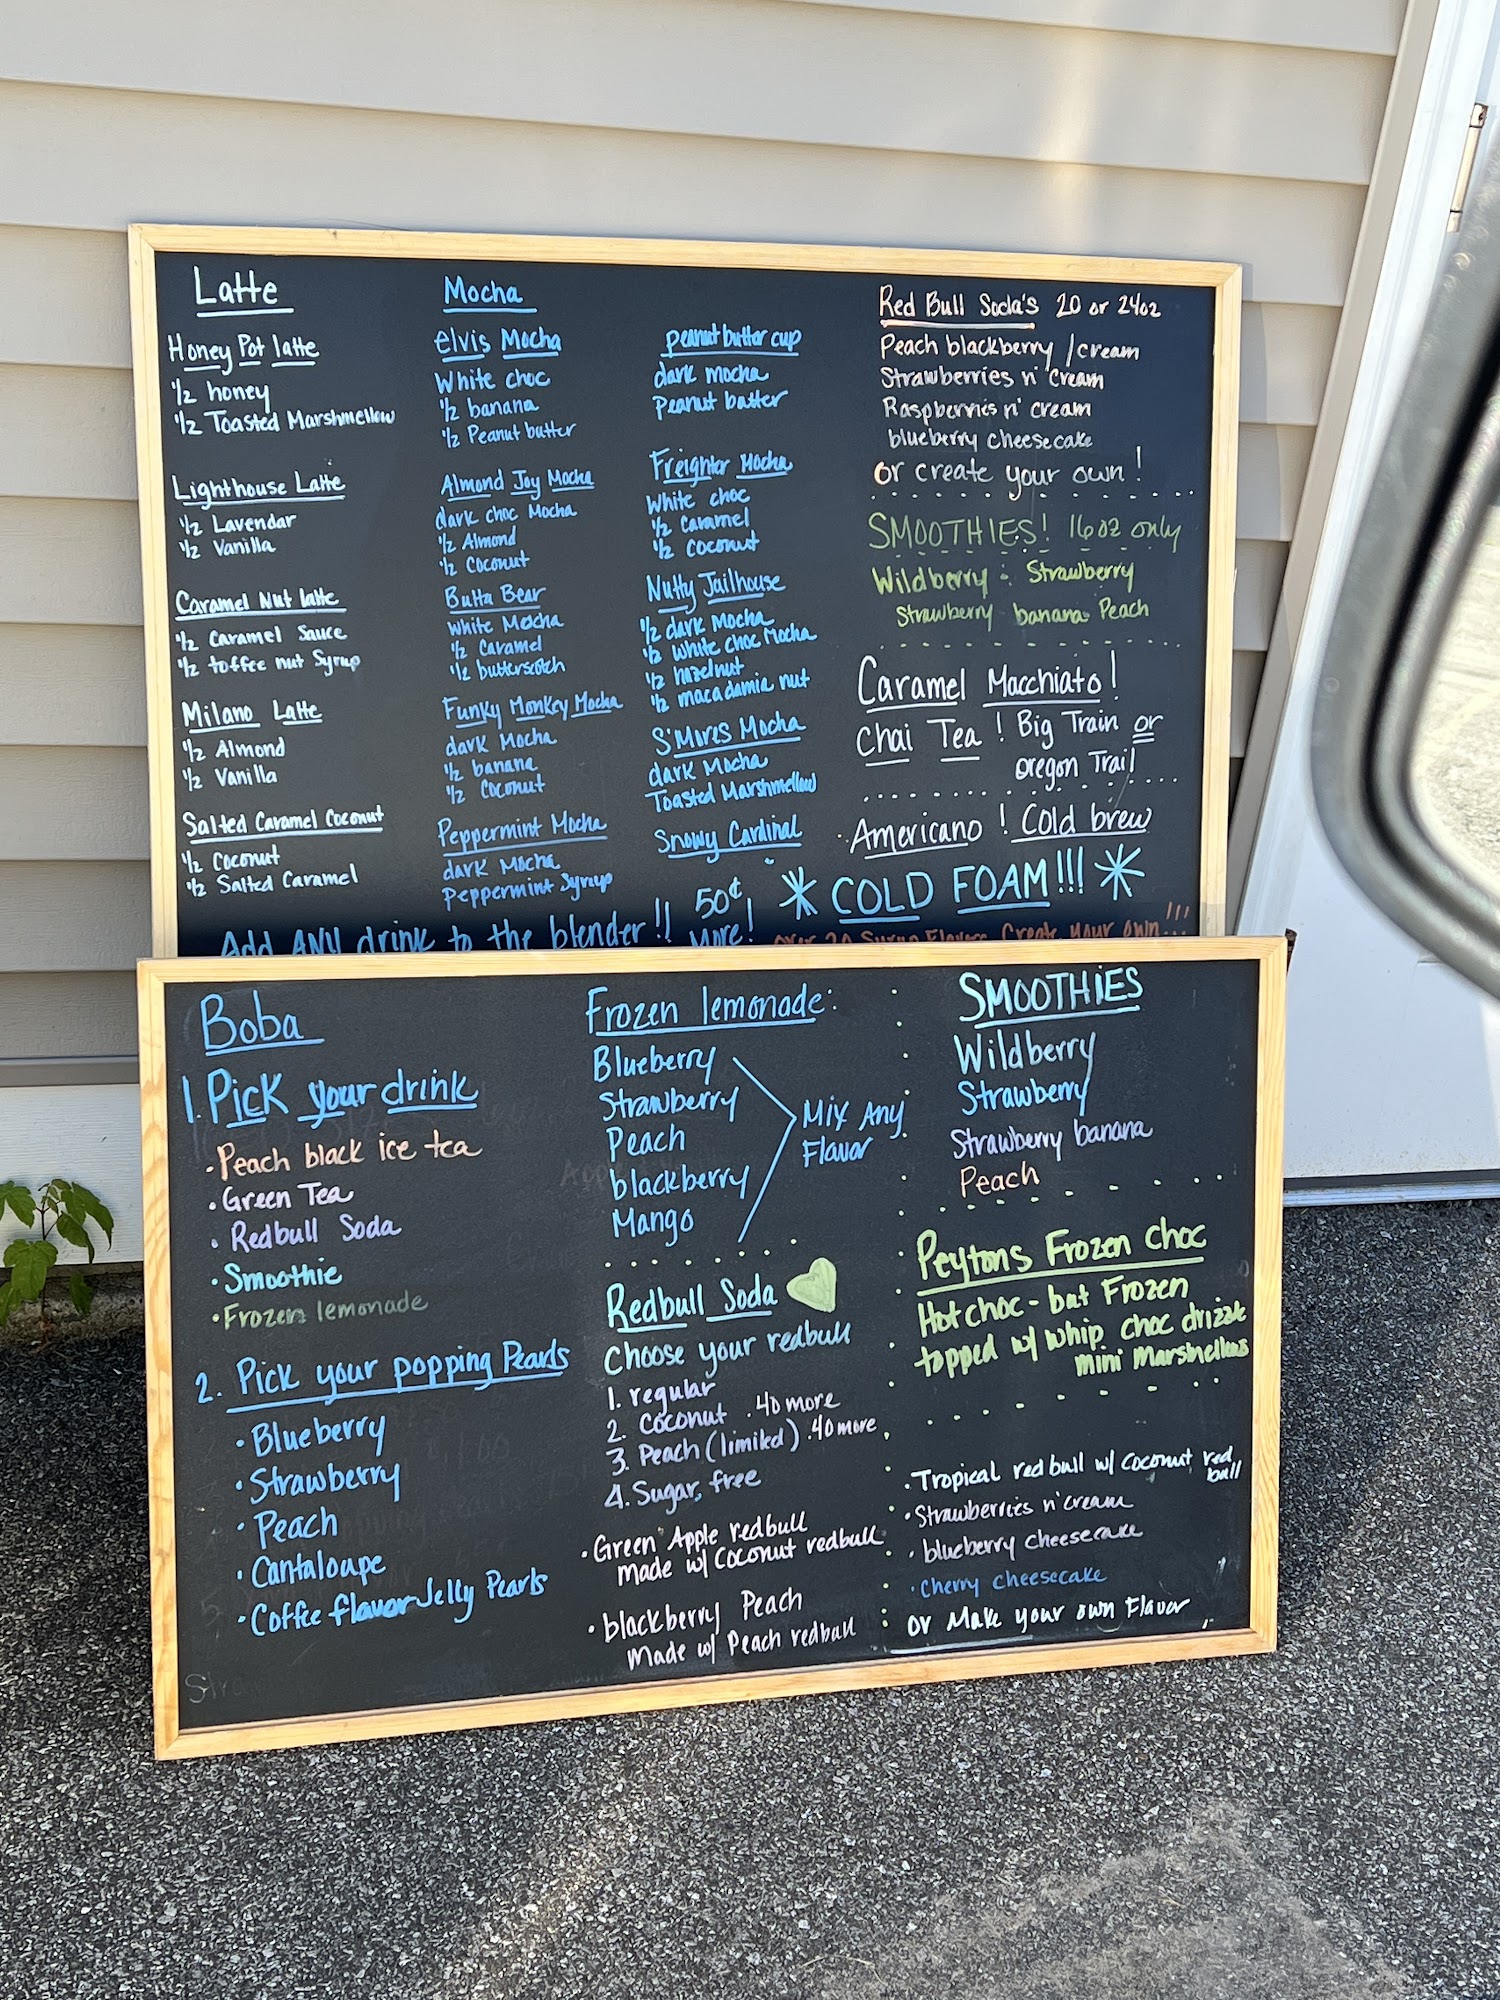 Latte
Honey Pot latte
1/2 honey
1/2 Toasted Marshmellow
Lighthouse Latte
1/2 Lavendar
1/2 Vanilla
Caramel Nut latte
1/2 Caramel Sauce
1/2 toffee nut Syrup
Milano Latte
1/2 Almond
1/2 Vanilla
Salted Caramel Coconut
1/2 Coconut
1/2 Salted Caramel
Mocha
elvis Mocha
White choc
1/2 banana
1/2 Peanut butter
Almond Joy Mocha
dark choc Mocha
1/2 Almond
1/2 Coconut
Butta Bear
White Mocha
1/2 Caramel
1/2 butterscotch
Funky Monkey Mocha
dark Mocha
1/2 banana
1/2 Coconut
Peppermint Mocha
dark Mocha
Peppermint Syrup
peanut butter cup
dark mocha
Peanut butter
Freighter Mocha
White choc
1/2 Caramel
1/2 Coconut
Nutty Jailhouse
1/2 dark Mocha
1/2 white choc Mocha
1/2 hazelnut
1/2 macadamia nut
S'Mores Mocha
dark Mocha
Toasted Marshmellow
Snowy Cardinal
Red Bull Soda's 20 or 24oz
Peach blackberry /cream
Strawberries n' cream
Raspberries n' cream
blueberry cheesecake
or create your own!
SMOOTHIES! 16oz only
Wildberry · Strawberry
Strawberry banana · Peach
Caramel Macchiato!
Chai Tea ! Big Train or
oregon Trail
Americano ! Cold brew
* COLD FOAM!!! *
Add ANY drink to the blender!! 50¢ More!
over 20 Syrup Flavors Create your own...!!!
Boba
1. Pick your drink
· Peach black ice tea
· Green Tea
· Redbull Soda
· Smoothie
· Frozen lemonade
2. Pick your popping Pearls
· Blueberry
· Strawberry
· Peach
· Cantaloupe
· Coffee flavor Jelly Pearls
Frozen lemonade:
Blueberry
Strawberry
Peach
blackberry
Mango
Mix Any
Flavor
Redbull Soda
Choose your redbull
1. regular
2. Coconut .40 more
3. Peach (limited) .40 more
4. Sugar free
· Green Apple redbull
made w/ Coconut redbull
· blackberry Peach
Made w/ Peach redbull
SMOOTHIES
Wildberry
Strawberry
Strawberry banana
Peach
Peytons Frozen Choc
Hot choc - but Frozen
topped w/ whip choc drizzle
mini Marshmellows
· Tropical red bull w/ Coconut red bull
· Strawberries n' cream
· blueberry cheesecake
· Cherry cheesecake
or Make your own Flavor